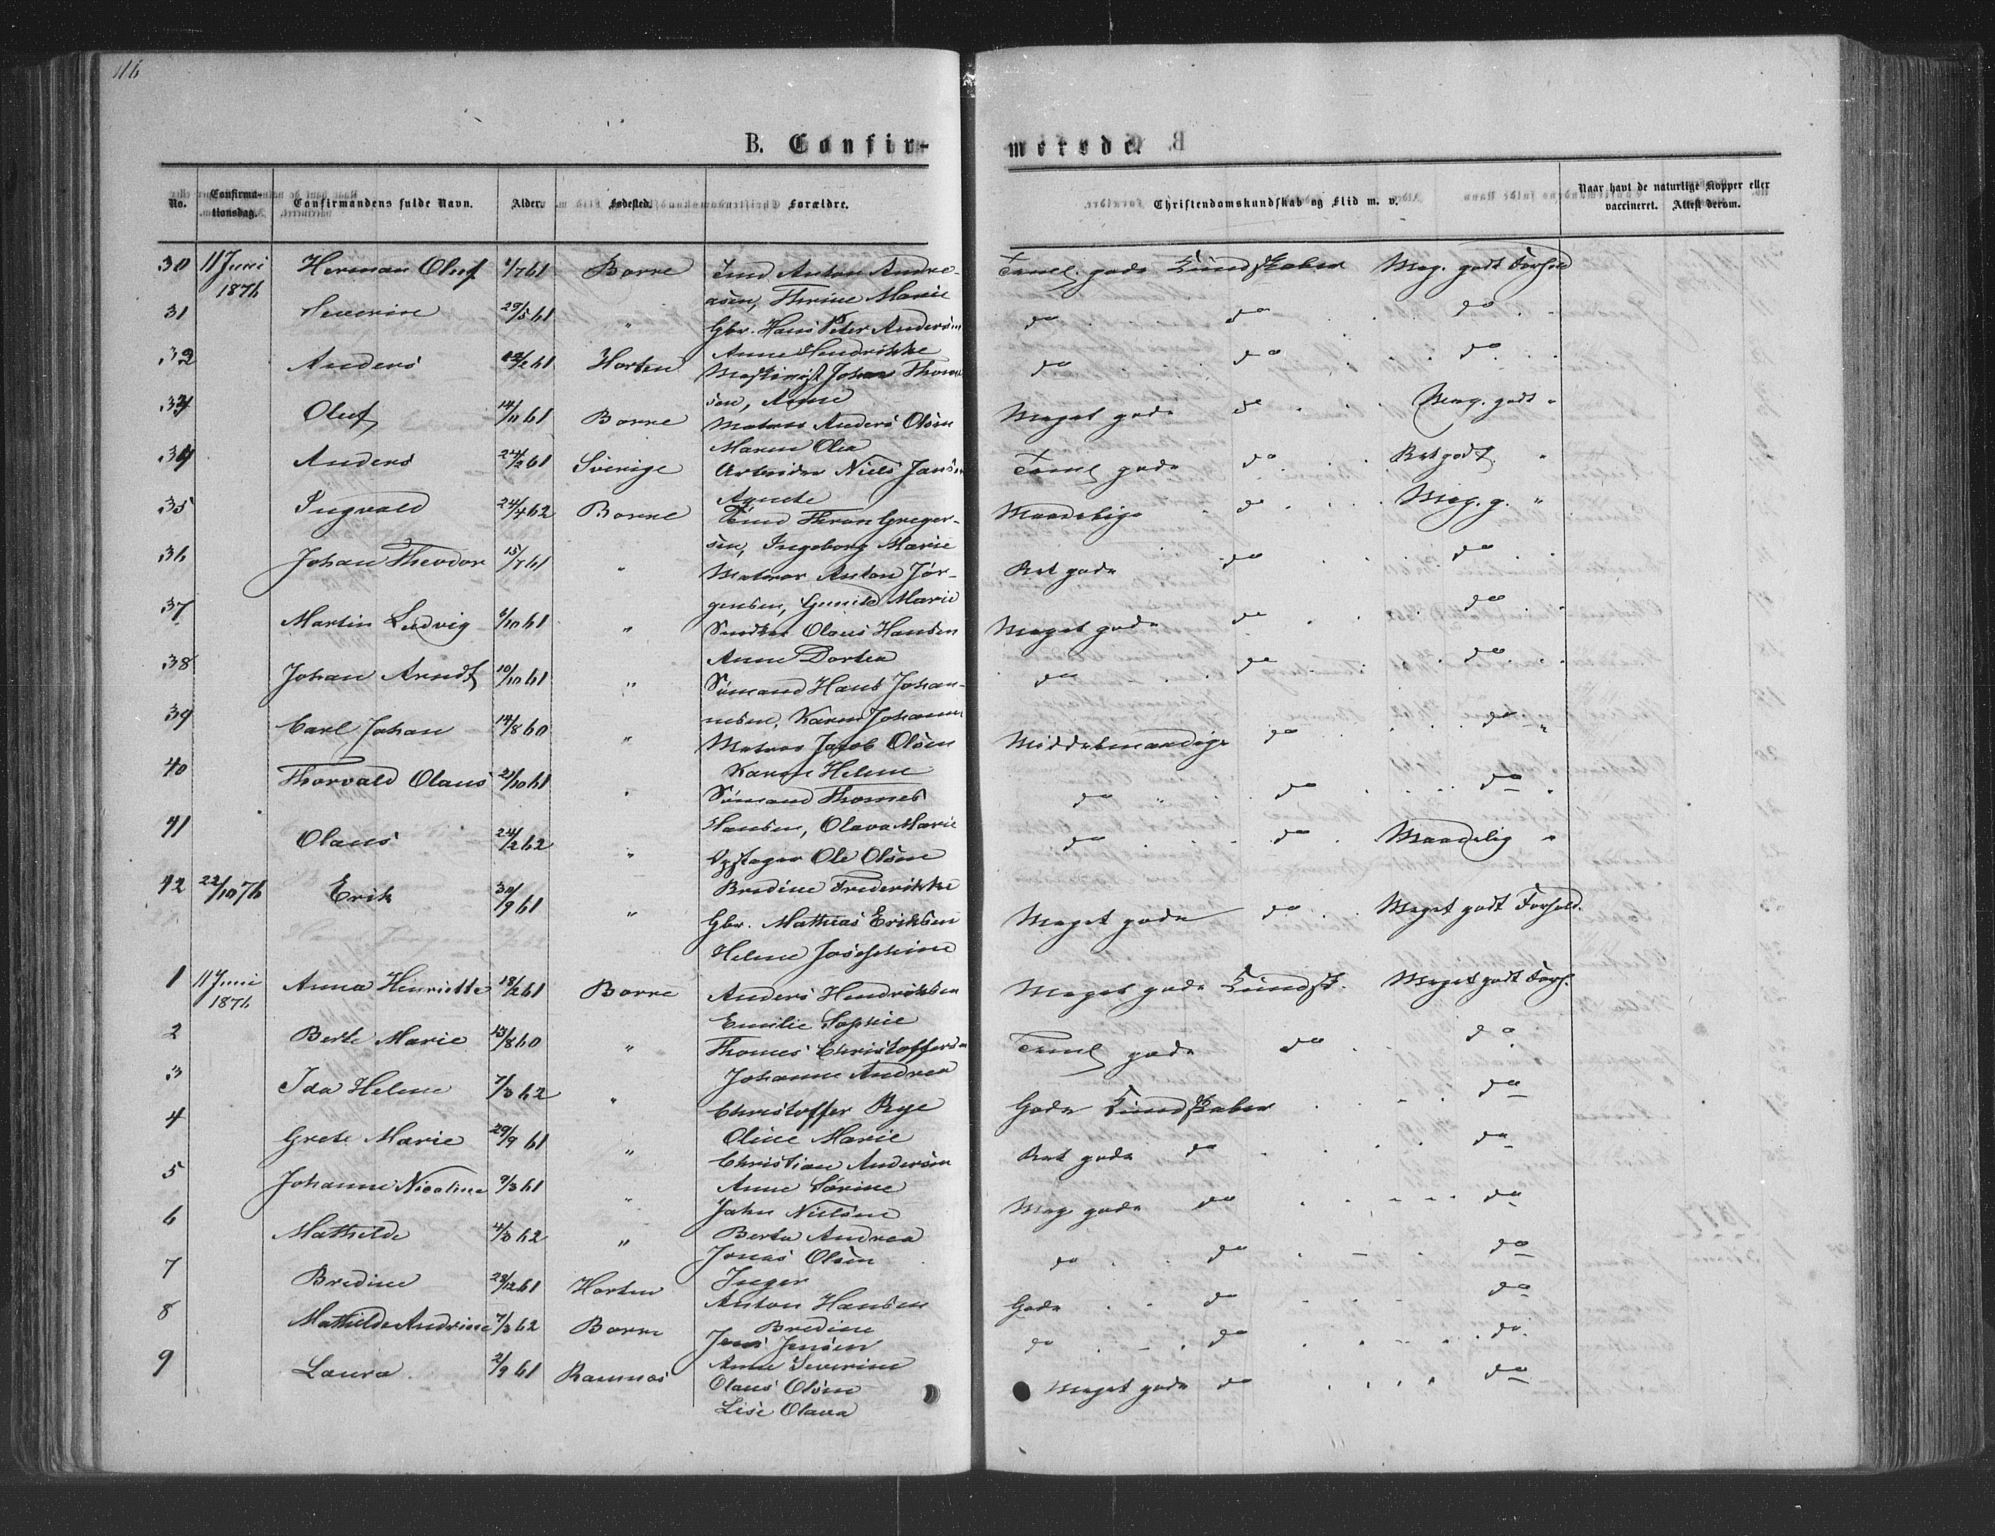 116
B. Confir- merede.
No. Confirma-tionsdag. Confirmandens fulde Navn. Alder. Fødested. Forældre. Christendomskundskab og Flid m. v. Naar havt de naturlige Kopper eller vaccineret. Attest derom.
30 11 Juni 1876 Herman Oluf 1/7 61 Borre Anton Andre-
asen, Thrine Marie Teml. gode Kundskaber Meg. godt Forhold
31 Severine 29/5 61 " Gbr. Hans Peter Andersen
Anne Hendrikke do do do
32 Anders 12/2 61 Horten Maskinist Johan Thom-
sen, Anne do do do
33 Oluf 14/11 61 Borre Matros Anders Olsen
Maren Olea Meget gode do Meg. godt "
34 Anders 24/2 61 Sverige Arbeider Niels Jansen
Agnete Teml gode do Ret godt "
35 Ingvald 24/4 62 Borre Greger-
sen, Ingeborg Marie Maadelige do Meg. g. "
36 Johan Theodor 15/7 61 " Matros Anton Jør-
gensen, Gunild Marie Ret gode do do
37 Martin Ludvig 6/10 61 " Snedker Olaus Hansen
Anne Dortea Meget gode do do
38 Johan Arndt 10/10 61 " Sømand Hans Johan-
nesen, Karen Johanne do do do
39 Carl Johan 14/8 60 " Matros Jacob Olsen
Karen Helene Middelmaadige do do "
40 Thorvald Olaus 21/10 61 " Sømand Thomes
Hansen, Olava Marie do " do do "
41 Olaus 24/2 62 " Opstager Ole Olsen
Bredine Frederikke do do Maadelig "
42 22/10 76 Erik 30/9 61 " Gbr. Mathias Eriksen
Helene Josephine Meget gode do Meget godt Forhold.
1 11 Juni 1876 Anna Henriette 18/2 61 Borre Anders Hendriksen
Emilie Sophie Meget gode Kundsk. Meget godt Forh.
2 Berte Marie 13/8 60 " Thomes Christoffersen
Johanne Andrea Teml gode do do
3 Ida Helene 7/3 62 " Christoffer Rye
Oline Marie Gode Kundskaber do
4 Grete Marie 29/9 61 " Christian Andersen
Anne Sørine Ret gode do do
5 Johanne Nicoline 9/3 61 " John Nielsen
Berta Andrea Meg. gode do do
6 Mathilde 4/3 62 " Jonas Olsen
Inger do do do
7 Bredine 28/12 61 Horten Anton Hansen
Bredine Gode do do
8 Mathilde Andrine 7/3 62 Borre Jens Jensen
Anne Severine do do do.
9 Laura 2/9 61 Ramnæs Olaus Olsen
Lise Olava Meget gode do do